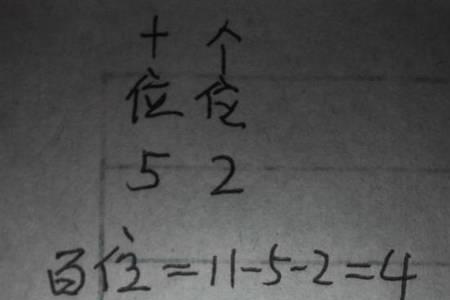 十 个
位 位
5 2
百位=11-5-2=4